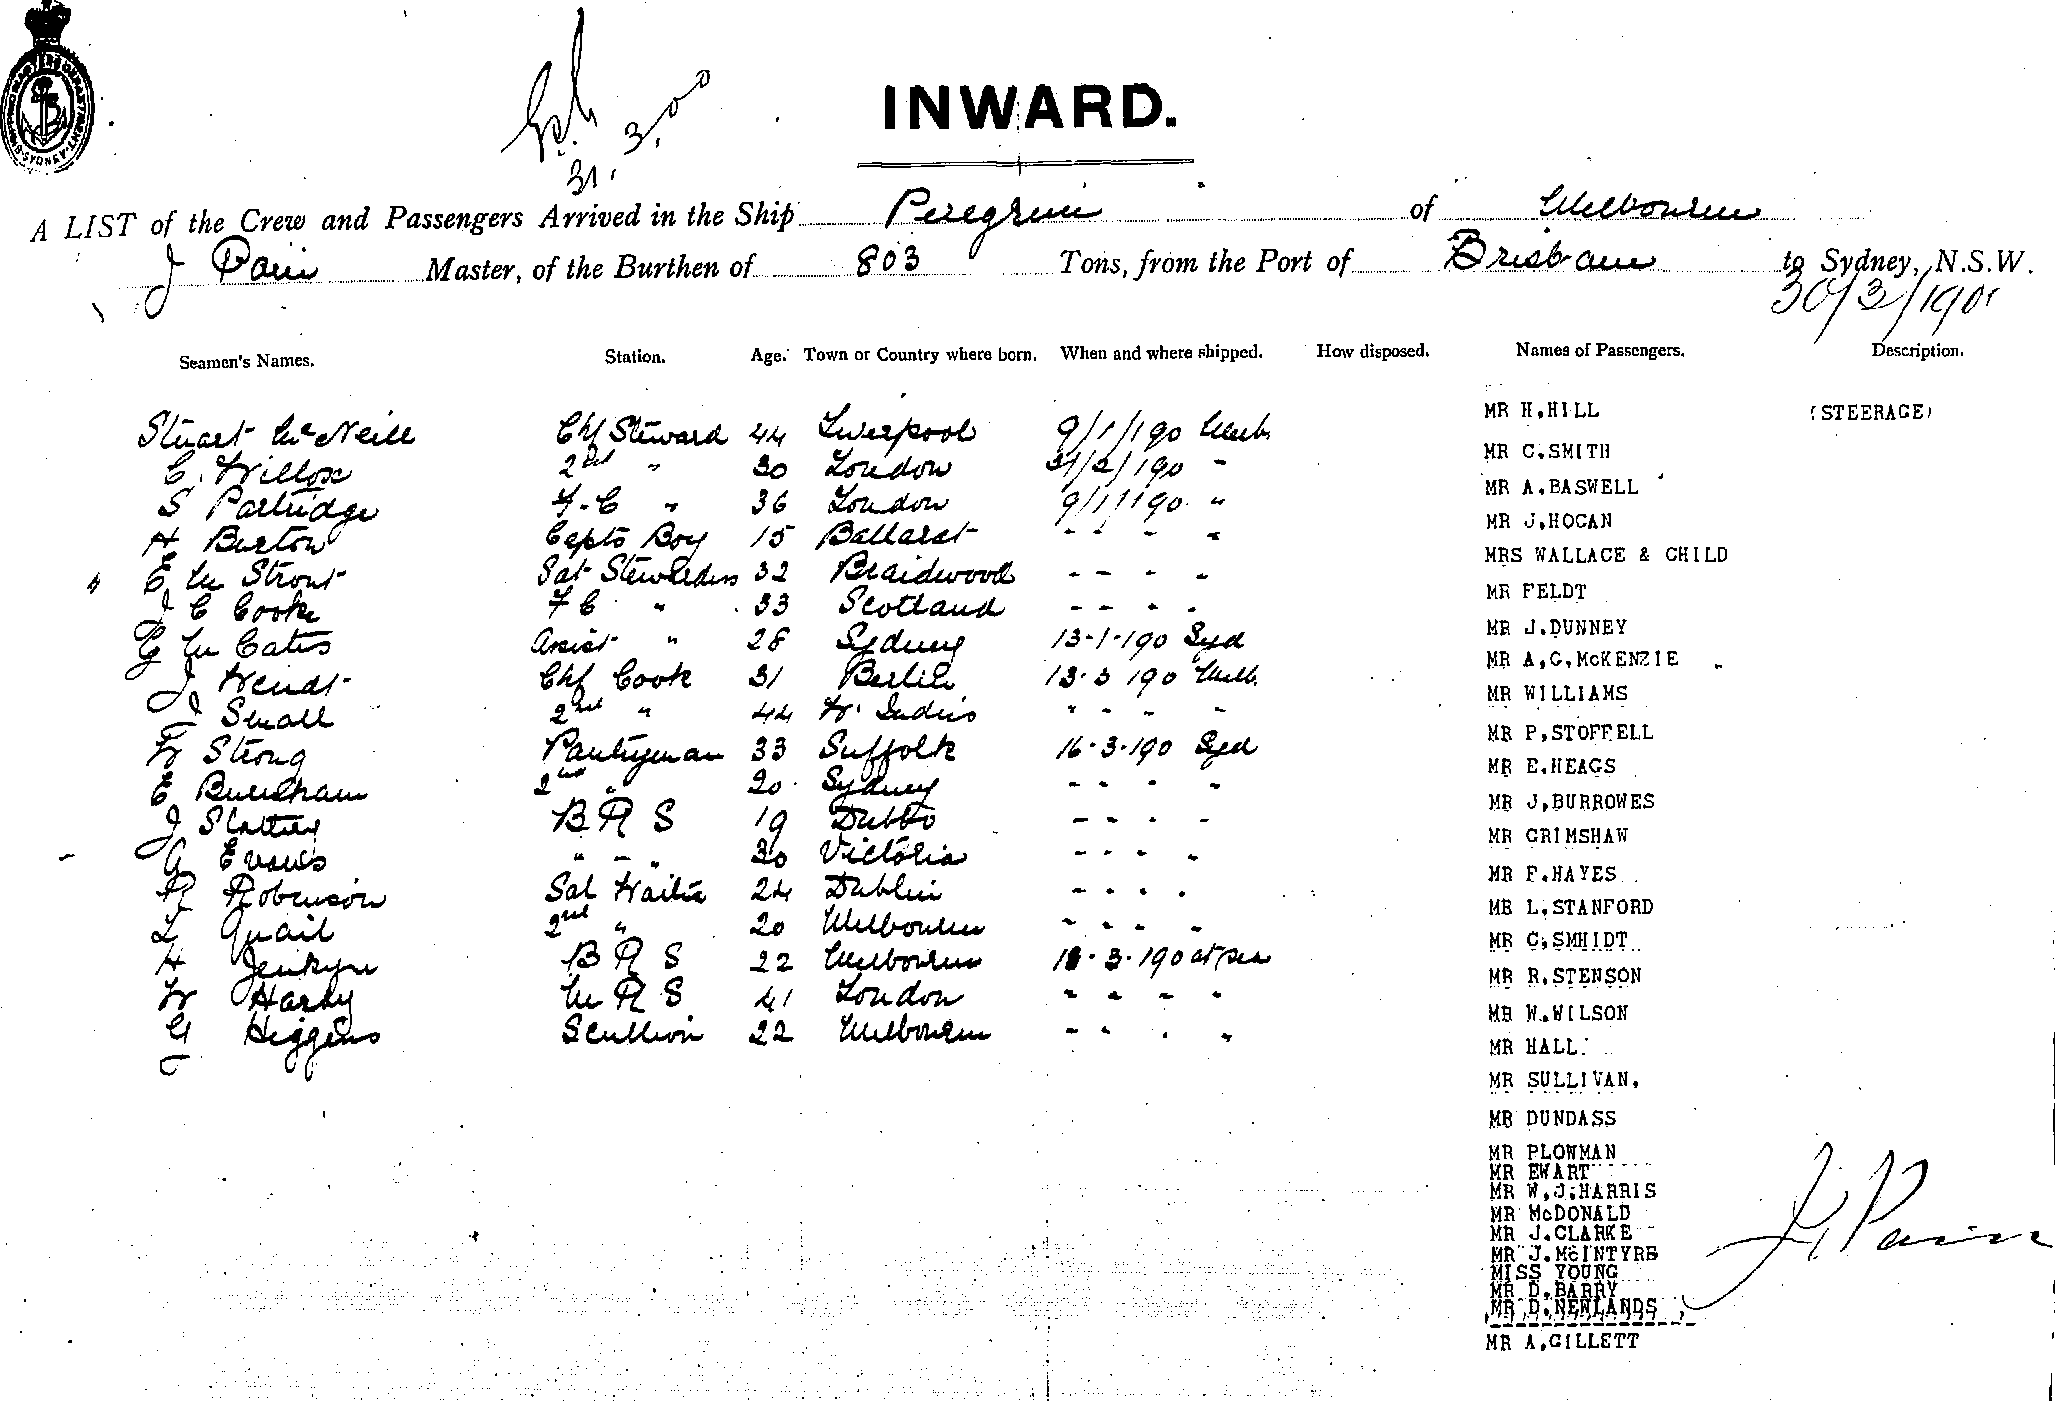 INWARD.
31. 3. 00
A LIST of the Crew and Passengers Arrived in the Ship Peregrine of Melbourne
J Pain Master, of the Burthen of 803 Tons, from the Port of Brisbane to Sydney, N.S.W.
30/3/190
Seamen's Names. Station. Age. Town or Country where born. When and where shipped. How disposed. Names of Passengers. Description.
Stuart McNeill Chf Steward 44 Liverpool 9/1/190 Melb. MR H.HILL (STEERAGE)
C. Willox 2nd " 30 London /2/190 " MR C.SMITH
S Partridge F.C " 36 London 9/1/190 " MR A.BASWELL
H Burton Capts Boy 15 Ballarat " " " " MR J.HOGAN
MRS WALLACE & CHILD
E M Strout Sal Stewardess 32 Braidwood " " " "
J C Cooke F C " 33 Scotland " " " " MR FELDT
G M Cates Assist " 28 Sydney 13-1-190 Syd MR J.DUNNEY
J Wendt Chf Cook 31 Berlin 13.3 190 Melb. MR A.G.McKENZIE
J Small 2nd " 44 W. Indies " " " " MR WILLIAMS
W Strong Pantryman 33 Suffolk 16.3.190 Syd MR P.STOFFELL
E Burnham 2nd " 20 Sydney " " " " MR E.HEAGS
J Slattery B R S 19 Dubbo " " " " MR J.BURROWES
A Evans " " " 30 Victoria " " " " MR GRIMSHAW
R Robinson Sal Waiter 24 Dublin " " " " MR F.HAYES
L Quail 2nd " 20 Melbourne " " " " MR L.STANFORD
H Jenkyn B R S 22 Melbourne 18.3.190 at sea MR C.SMHIDT
W Hardy M R S 41 London " " " " MR R.STENSON
G Higgins Scullion 22 Melbourne " " " " MR W.WILSON
MR HALL.
MR SULLIVAN.
MR DUNDASS
MR PLOWMAN
MR EWART
MR W.J.HARRIS
MR McDONALD
MR J.CLARKE
MR J.McINTYRE
MISS YOUNG
MR D.BARRY
MR D.NEWLANDS
MR A.GILLETT
J. Pain